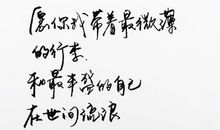 愿你我带着最微薄
的行李
和最丰盛的自己
在世间流浪